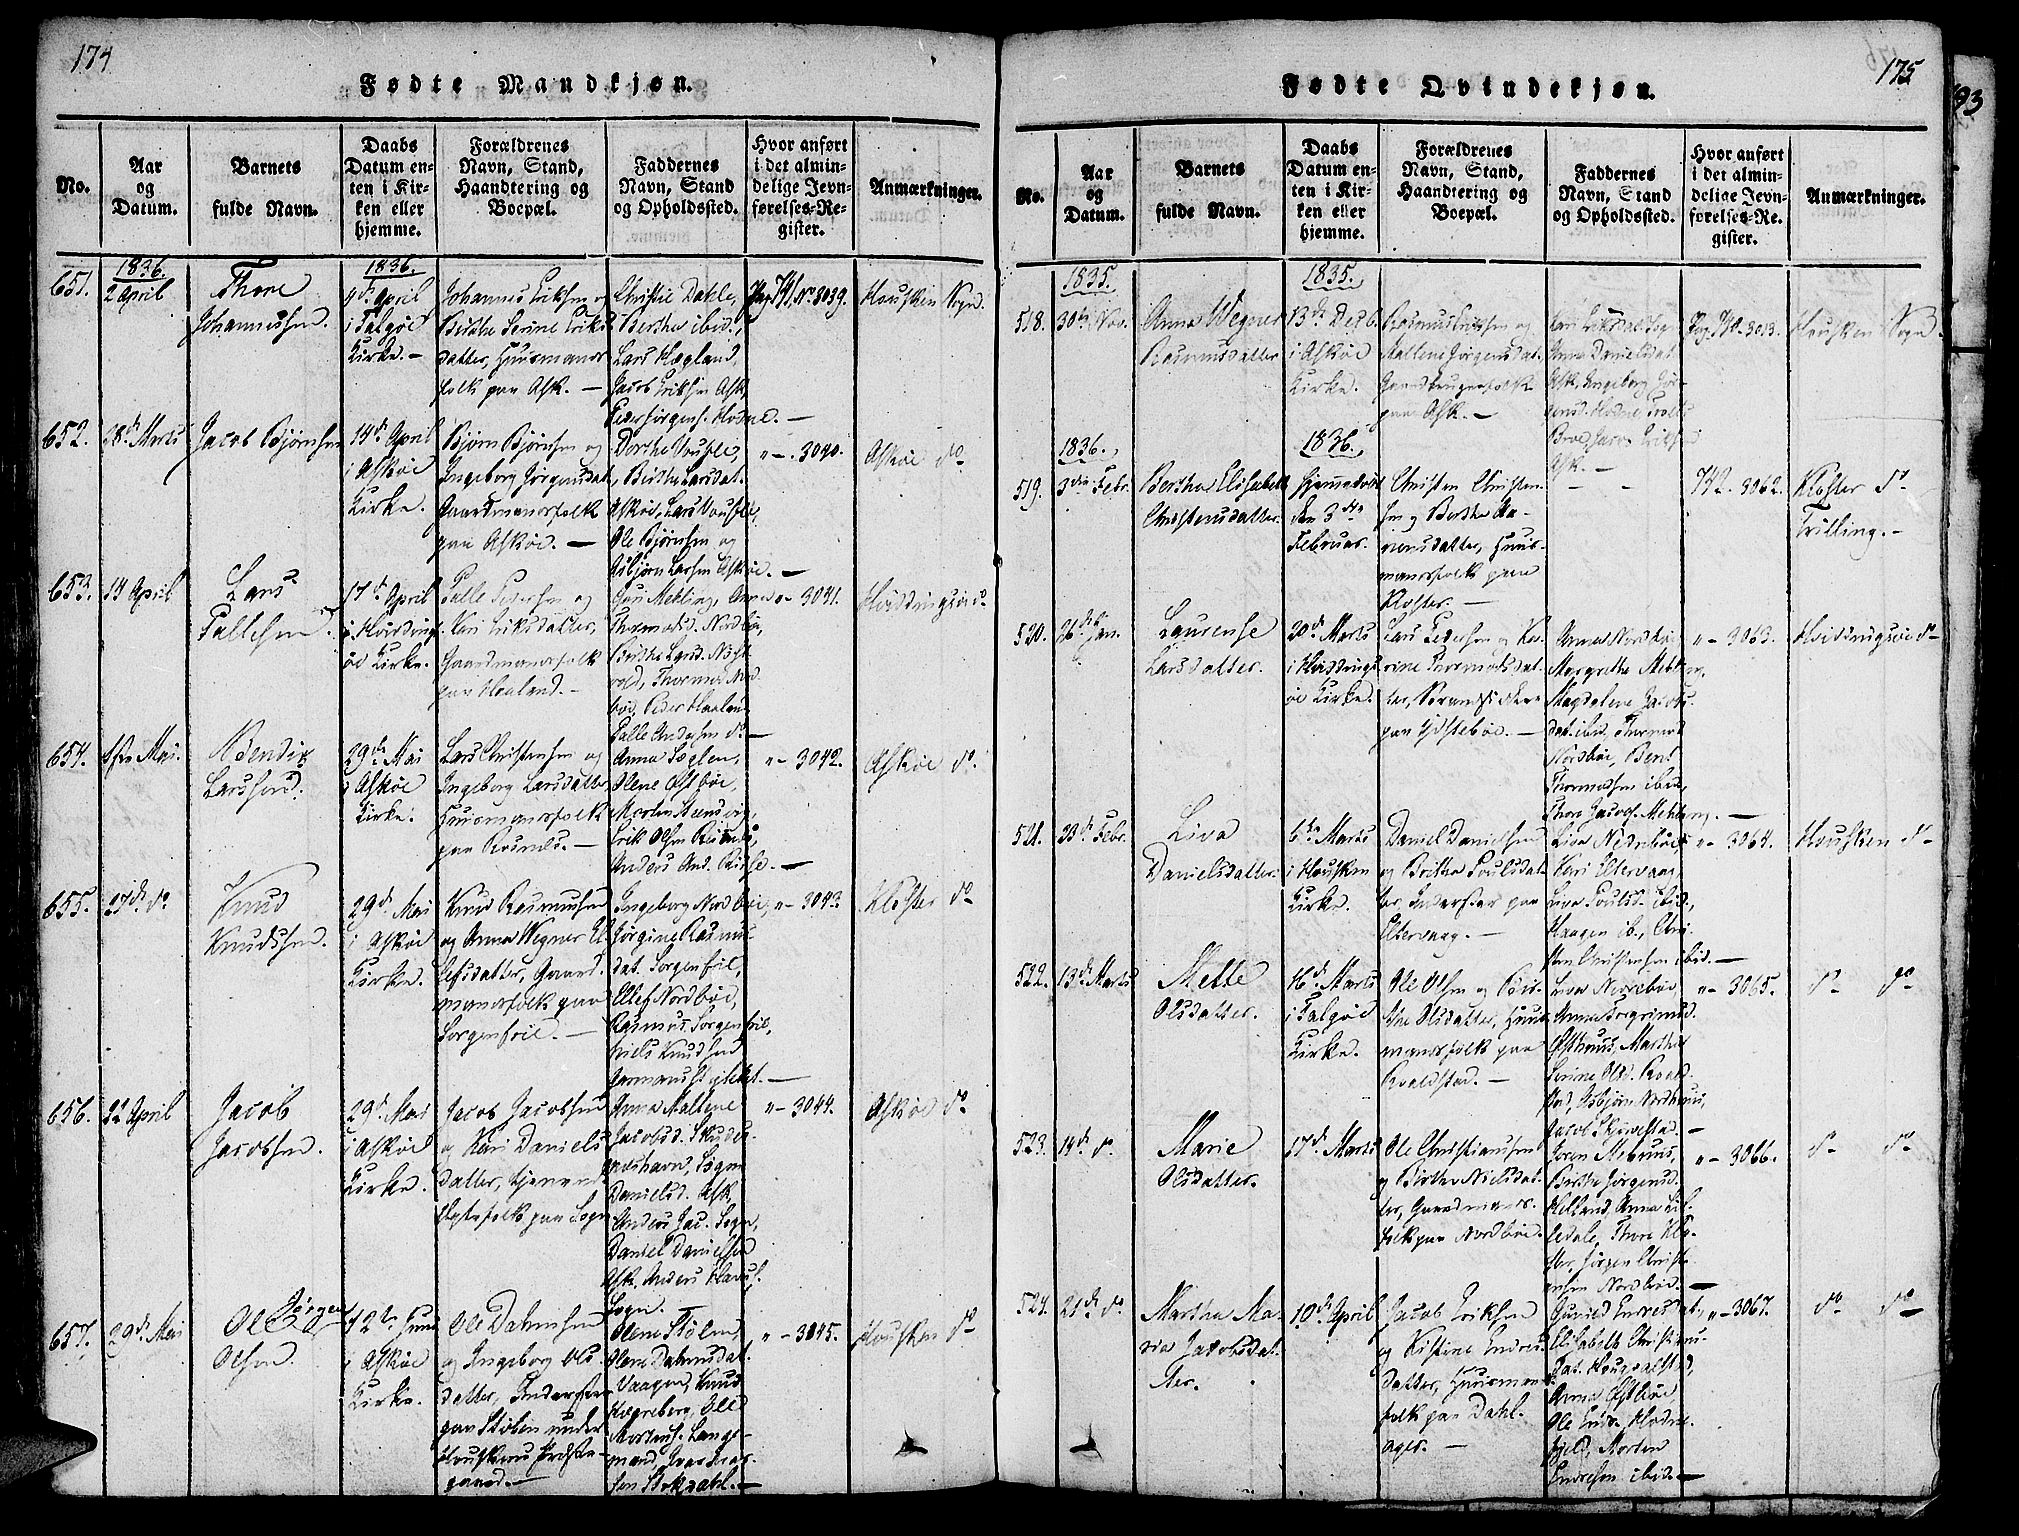 174
Fødte Mandkjøn.
No.
Aar
og
Datum.
Barnets
fulde Navn.
Daabs
Datum en-
ten i Kir-
ken eller
hjemme.
Forældrenes
Navn, Stand,
Haandtering og
Boepæl.
Faddernes
Navn, Stand
og Opholdssted.
Hvor anført
i det almin-
delige Jevn-
førelses-Re-
gister.
Anmærkninger.
651.
1836.
2 April
Thore
Johannessen.
1836.
4de April
i Talgøe
Kirke. –
Johannes Eriksen og
Berthe Serine Eriks-
datter, Huusmands-
folk paa Ask. –
Christie Dahle,
Berthe ibid.,
Lars Hægland,
Jacob Eriksen Ask,
Peder Jørgens. Hodne. –
Pag 741 No 3039.
Housken Sogn.
652.
28de Marts
Jacob Bjørnsen
14de April
i Askøe
Kirke.
Bjørn Bjørnsen og
Ingeborg Jørgensdat.
Gaardmandsfolk
paa Askøe. –
Berthe Larsdat.
Ole Bjørnsen og
Asbjørn Larsen Askøe. –
" – 3040.
Askøe do
653.
14 April
Lars
Pallesen.
17de April
i Hvidings-
øe Kirke.
Palle Pedersen og
Kari Eriksdatter,
Gaardmandsfolk
paa Haaland. –
Thormodsd. Nordbøe,
Peder Haaland
" – 3041.
Hvidingsøe do
654.
1ste Mai.
Bendix
Larssen.
29de Mai
i Askøe
Kirke.
Lars Christensen og
Ingeborg Larsdatter
Huusmandsfolk
paa Rosnes. –
Anna Soglen,
Olene Østbøe,
Morten Steensvig,
Erik Olsen
" – 3042.
Askøe do.
655.
27de do
Knud
Knudsen.
29de Mai
i Askøe
Kirke.
Knud Rasmussen
og Anna Wegner El-
lefsdatter, Gaard-
mandsfolk paa
Sorgenfrie. –
Ingeborg Nordbøe,
Jørgine Rasmus-
dat. Sorgenfrie,
Ellef Nordbøe,
Rasmus Sorgenfrie,
Niels Knudsen
" – 3043.
Kloster do
656.
22 April
Jacob
Jacobsen.
29de Mai
i Askøe
Kirke.
Jacob Jacobsen
og Kari Daniels-
datter, tjenende
paa Sogn
Anna Maltene
Jacobsd. Skudes-
neshavn,
Danielsd. Ask,
Anders Jac. Sogn,
Daniel Danielsen
Ask, Anders
Sogn. –
" – 3044.
Askøe do
657.
29de Mai
Ole Jørgen
Olsen.
12te Juni
i Askøe
Kirke.
Ole Dahnsen
og Ingeborg Ols-
datter, Inderster
paa Stølen under
Houskens Præste-
gaard. –
Olene Stølen,
Olene Dahnsdat.
Vaagen, Knud
Hægreberg, Ole
" – 3045.
Housken do
175
Fødte Qvindekjøn.
No.
Aar
og
Datum.
Barnets
fulde Navn.
Daabs
Datum en-
ten i Kir-
ken eller
hjemme.
Forældrenes
Navn, Stand,
Haandtering og
Boepæl.
Faddernes
Navn, Stand
og Opholdssted.
Hvor anført
i det almin-
delige Jevn-
førelses-Re-
gister.
Anmærkninger.
518.
1835.
30te Nov.
Anna Wegner
Rasmusdatter
1835.
13de Decb.
i Askøe
Kirke.
Rasmus Eriksen og
Maltene Jørgensdat.
Gaardbrugerfolk
paa Ask. –
Anna Danielsdat
Ask, Ingeborg Jør-
gensd. Hodne
Ask. –
Pag. 740. 3013.
Housken Sogn.
519.
1836.
3die Febr.
Berthe Elisabeth
Christensdatter.
1836.
Hjemmedøbt
den 3die
Februar.
Christen Christen-
sen og Berthe Ha-
nensdatter, Huus-
mandsfolk paa
Kloster. –
– –
742. 3062.
Kloster do
Trilling. –
520.
26de Jan.
Laurense
Larsdatter.
20de Marts
i Hvidings-
øe Kirke.
Lars Pedersen og Ka-
rine Thormodsdat-
ter, Strandsiddere
paa Ydstebøe. –
Anna Nordbøe
Margrethe Mehling,
Magdalene Jacobs-
dat. ibid, Thormod
Nordbøe, Bent
Thormodsen ibid,
Thore Jacobs. Mehling. –
" – 3063.
Hvidingsøe do
521.
23de Febr.
Liva
Danielsdatter.
6te Marts
i Housken
Kirke.
Daniel Danielsen
og Brithe Poulsdat-
ter, Inderster paa
Eltervaag. –
Liva Nedrebøe,
Kari Eltervaag,
Liva Poulsd. ibid,
Haagen ib., Chri-
sten Christensen ibid. –
" – 3064.
Housken do
522.
13de Marts
Mette
Olsdatter.
16de Marts
i Talgøe
Kirke.
Ole Olsen og Bri-
the Olsdatter, Huus-
mandsfolk paa
Roaldstad. –
Østhuus, Marthe
Serine Olsd. Roald-
stad, Asbjørn Nordhuus,
Jacob Skjørestad. –
" – 3065.
do do
523.
14de do
Marie
Olsdatter.
17de Marts
Ole Christiansen
og Birthe Nielsdat-
ter, Gaardmands-
folk paa Nordbøe.
Berthe Jørgensd.
Helland, Anna Lil-
ledale, Thore Klo-
ster, Jørgen Christi-
ansen Nordbøe. –
" – 3066.
do do
524.
21de do
Marthe Ma-
ria Jacobsdat-
ter.
10de April
Jacob Eriksen
og Kistine Endres-
datter, Huusmands-
folk paa Dahl-
ager. –
Gunild Endresdat,
Elisabeth Christians-
dat.
Anna Østbøe
Ole Endr. Hodne-
fjeld, Morten
Endresen ibid. –
" – 3067.
do do